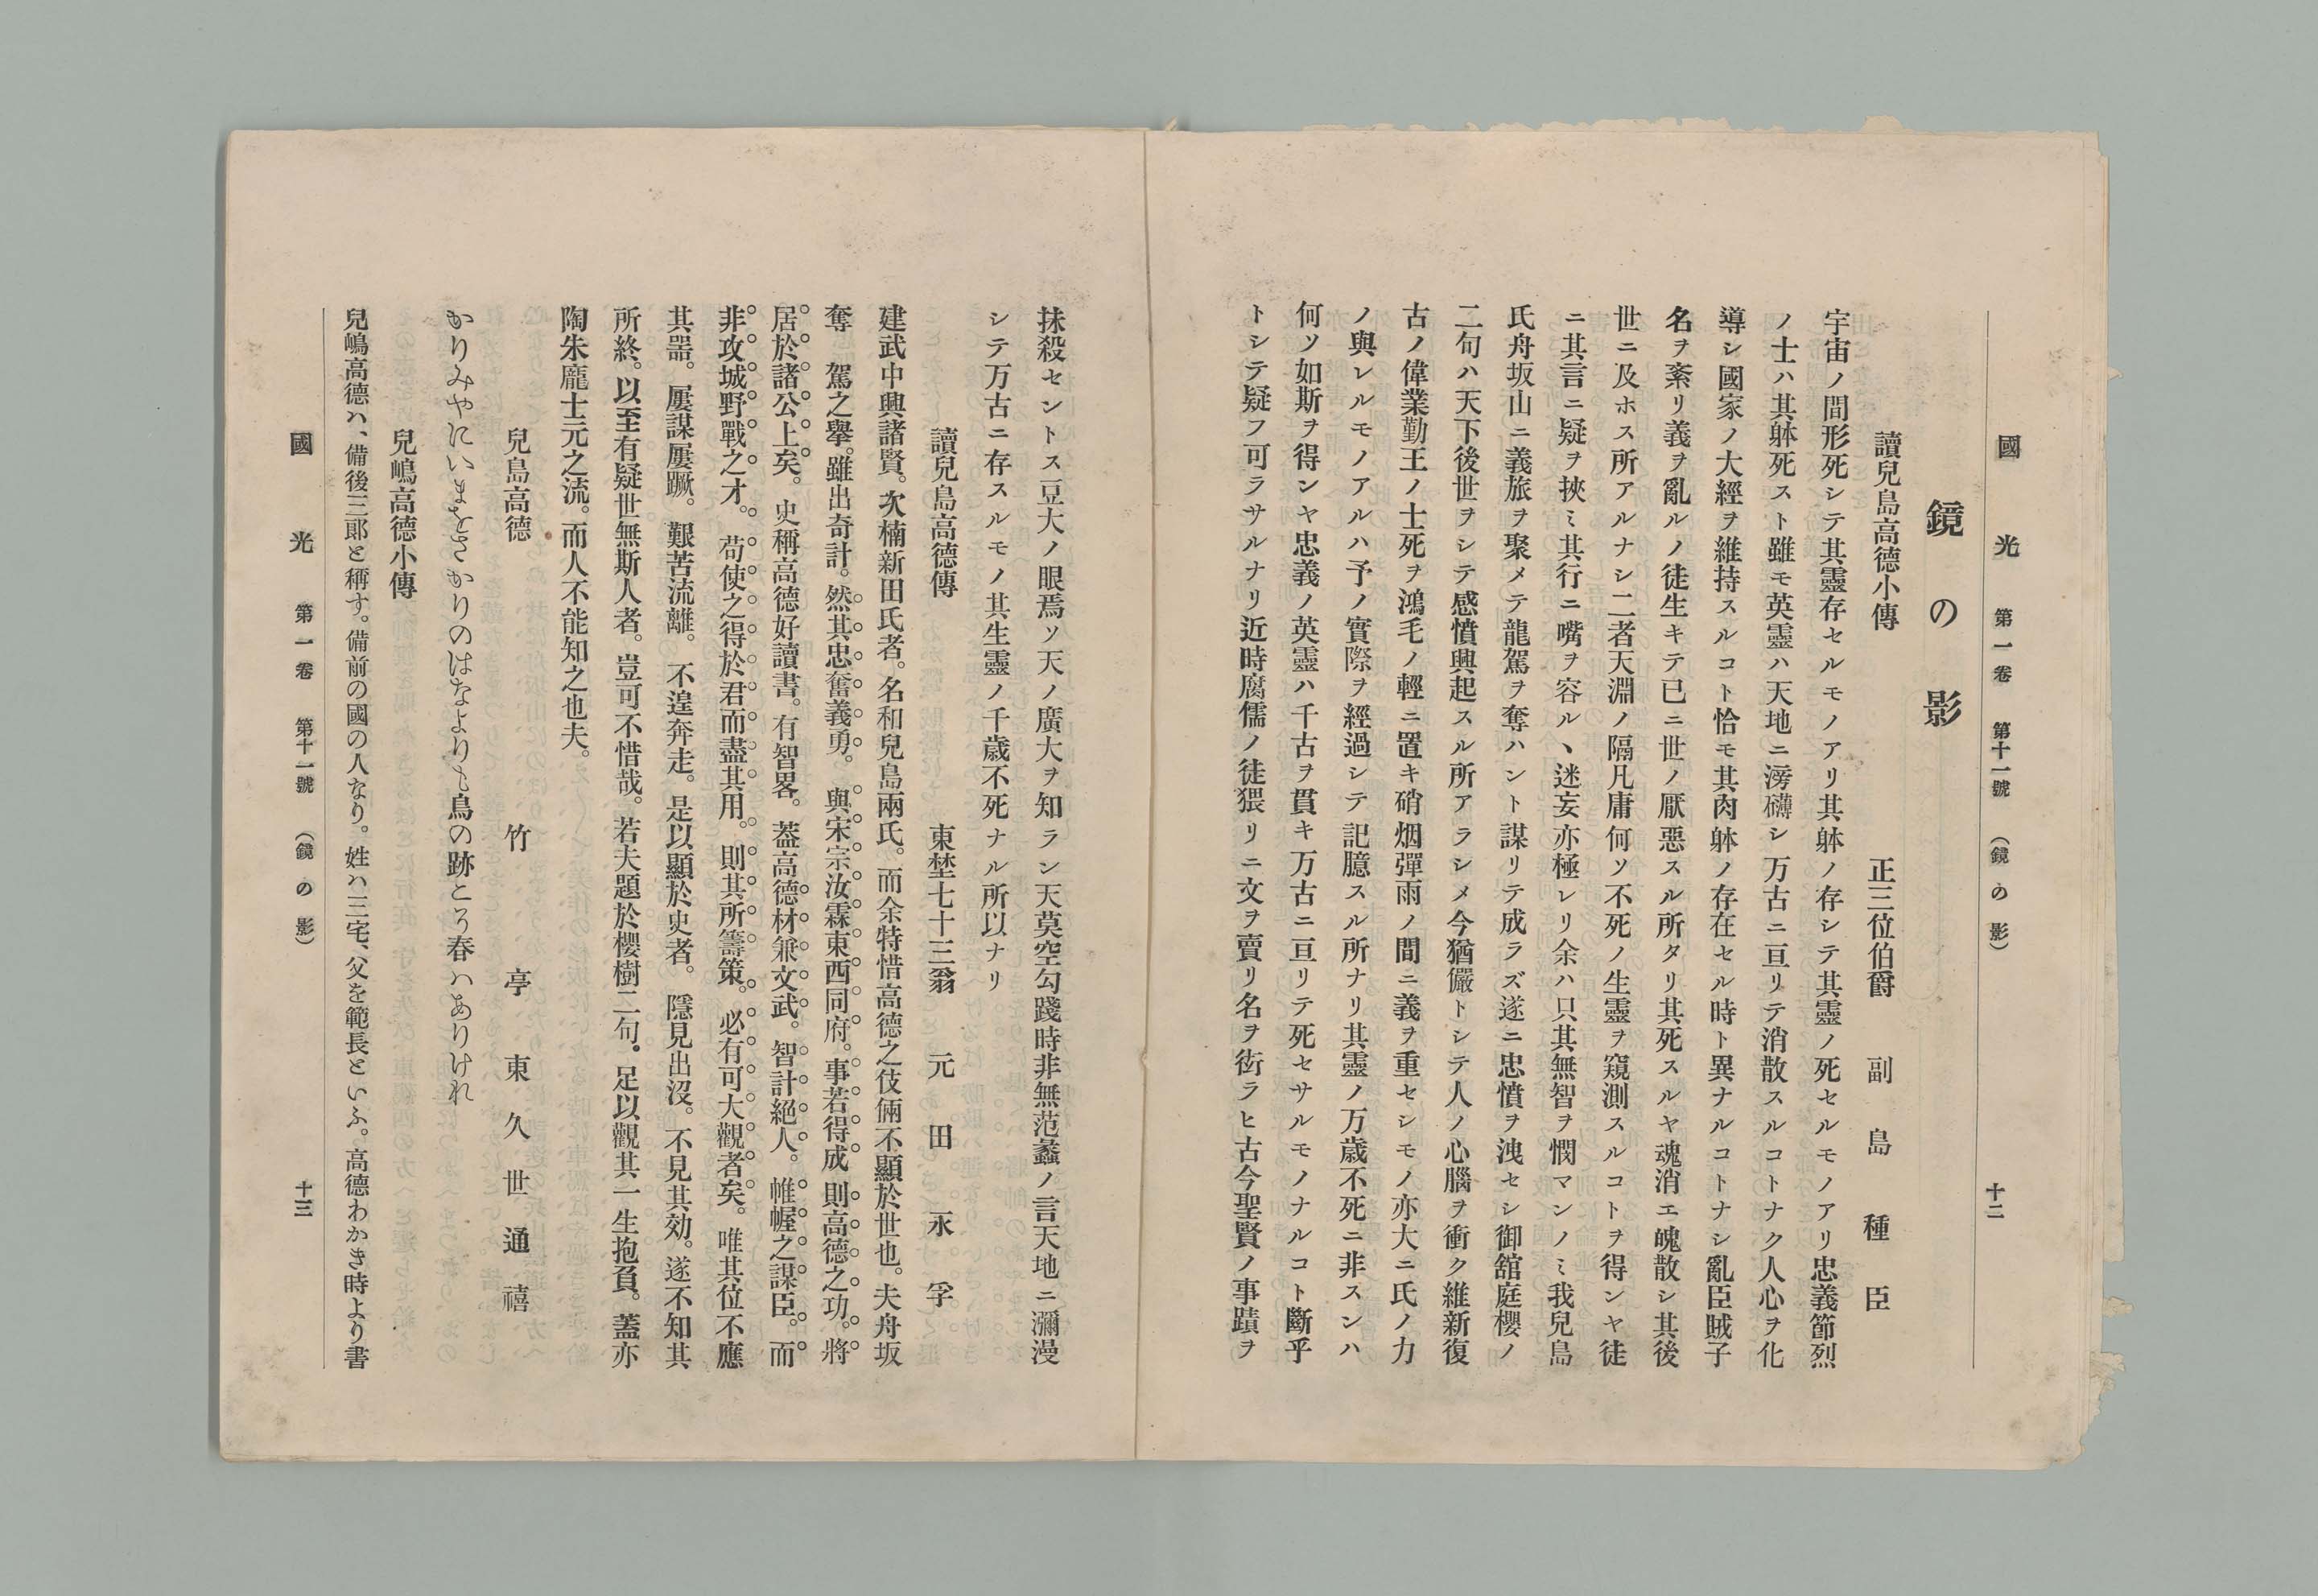 國光 第一卷 第十一號 (鏡の影) 十二
鏡の影
讀兒島高德小傳 正三位伯爵 副島種臣
宇宙ノ間形死シテ其靈存セルモノアリ其躰ノ存シテ其靈ノ死セルモノアリ忠義節烈
ノ士ハ其躰死スト雖モ英靈ハ天地ニ滂礴シ万古ニ亘リテ消散スルコトナク人心ヲ化
導シ國家ノ大經ヲ維持スルコト恰モ其肉躰ノ存在セル時ト異ナルコトナシ亂臣賊子
名ヲ紊リ義ヲ亂ルノ徒生キテ已ニ世ノ厭惡スル所タリ其死スルヤ魂消エ魄散シ其後
世ニ及ホス所アルナシ二者天淵ノ隔凡庸何ソ不死ノ生靈ヲ窺測スルコトヲ得ンヤ徒
ニ其言ニ疑ヲ挾ミ其行ニ嘴ヲ容ルヽ迷妄亦極レリ余ハ只其無智ヲ憫マンノミ我兒島
氏舟坂山ニ義旅ヲ聚メテ龍駕ヲ奪ハント謀リテ成ラズ遂ニ忠憤ヲ洩セシ御舘庭櫻ノ
二句ハ天下後世ヲシテ感憤興起スル所アラシメ今猶儼トシテ人ノ心腦ヲ衝ク維新復
古ノ偉業勤王ノ士死ヲ鴻毛ノ輕ニ置キ硝烟彈雨ノ間ニ義ヲ重セシモノ亦大ニ氏ノ力
ノ與レルモノアルハ予ノ實際ヲ經過シテ記臆スル所ナリ其靈ノ万歲不死ニ非スンハ
何ソ如斯ヲ得ンヤ忠義ノ英靈ハ千古ヲ貫キ万古ニ亘リテ死セサルモノナルコト斷乎
トシテ疑フ可ラサルナリ近時腐儒ノ徒猥リニ文ヲ賣リ名ヲ衒ラヒ古今聖賢ノ事蹟ヲ
抹殺セントス豆大ノ眼焉ソ天ノ廣大ヲ知ラン天莫空勾踐時非無范蠡ノ言天地ニ瀰漫
シテ万古ニ存スルモノ其生靈ノ千歲不死ナル所以ナリ
讀兒島高德傳 東埜七十三翁 元田永孚
建武中興諸賢。次楠新田氏者。名和兒島兩氏。而余特惜高德之伎倆不顯於世也。夫舟坂
奪駕之擧。雖出奇計。然其忠奮義勇。與宋宗汝霖東西同府。事若得成則高德之功。將
居於諸公上矣。史稱高德好讀書。有智畧。葢高德材兼文武。智計絕人。帷幄之謀臣。而
非攻城野戰之才。苟使之得於君而盡其用。則其所籌策。必有可大觀者矣。唯其位不應
其噐。屢謀屢蹶。艱苦流離。不遑奔走。是以顯於史者。隱見出沒。不見其効。遂不知其
所終。以至有疑世無斯人者。豈可不惜哉。若夫題於櫻樹二句。足以觀其一生抱負。葢亦
陶朱龐士元之流。而人不能知之也夫。
兒島高德 竹亭 東久世通禧
かりみやにいまをさかりのはなよりも鳥の跡とろ春ハありけれ
兒嶋高德小傳
兒嶋高德ハ、備後三郞と稱す。備前の國の人なり。姓ハ三宅、父を範長といふ。高德わかき時より書
國光 第一卷 第十一號 (鏡の影) 十三